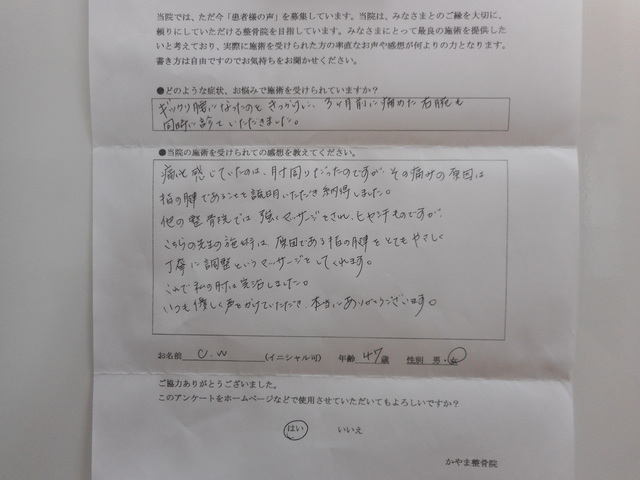 当院では、ただ今「患者様の声」を募集しています。当院は、みなさまとのご縁を大切に、
頼りにしていただける整骨院を目指しています。みなさまにとって最良の施術を提供した
いと考えており、実際に施術を受けられた方の率直なお声や感想が何よりの力となります。
書き方は自由ですのでお気持ちをお聞かせください。
●どのような症状、お悩みで施術を受けられていますか？
ギックリ腰になったのをきっかけに、3ヶ月前に痛めた右腕も
同時に診ていただきました。
●当院の施術を受けられての感想を教えてください。
痛いと感じていたのは、肘周りだったのですが、その痛みの原因は
指の腱であることを説明いただき納得しました。
他の整骨院では強くマッサージをされ、ヒヤヒヤものですが、
こちらの先生の施術は、原因である指の腱をとてもやさしく
丁寧に調整というマッサージをしてくれます。
これで私の肘は復活しました。
いつも優しく声をかけていただき、本当にありがとうございます。
お名前 C.W (イニシャル可) 年齢 47歳 性別 男・女
ご協力ありがとうございました。
このアンケートをホームページなどで使用させていただいてもよろしいですか？
はい いいえ
かやま整骨院